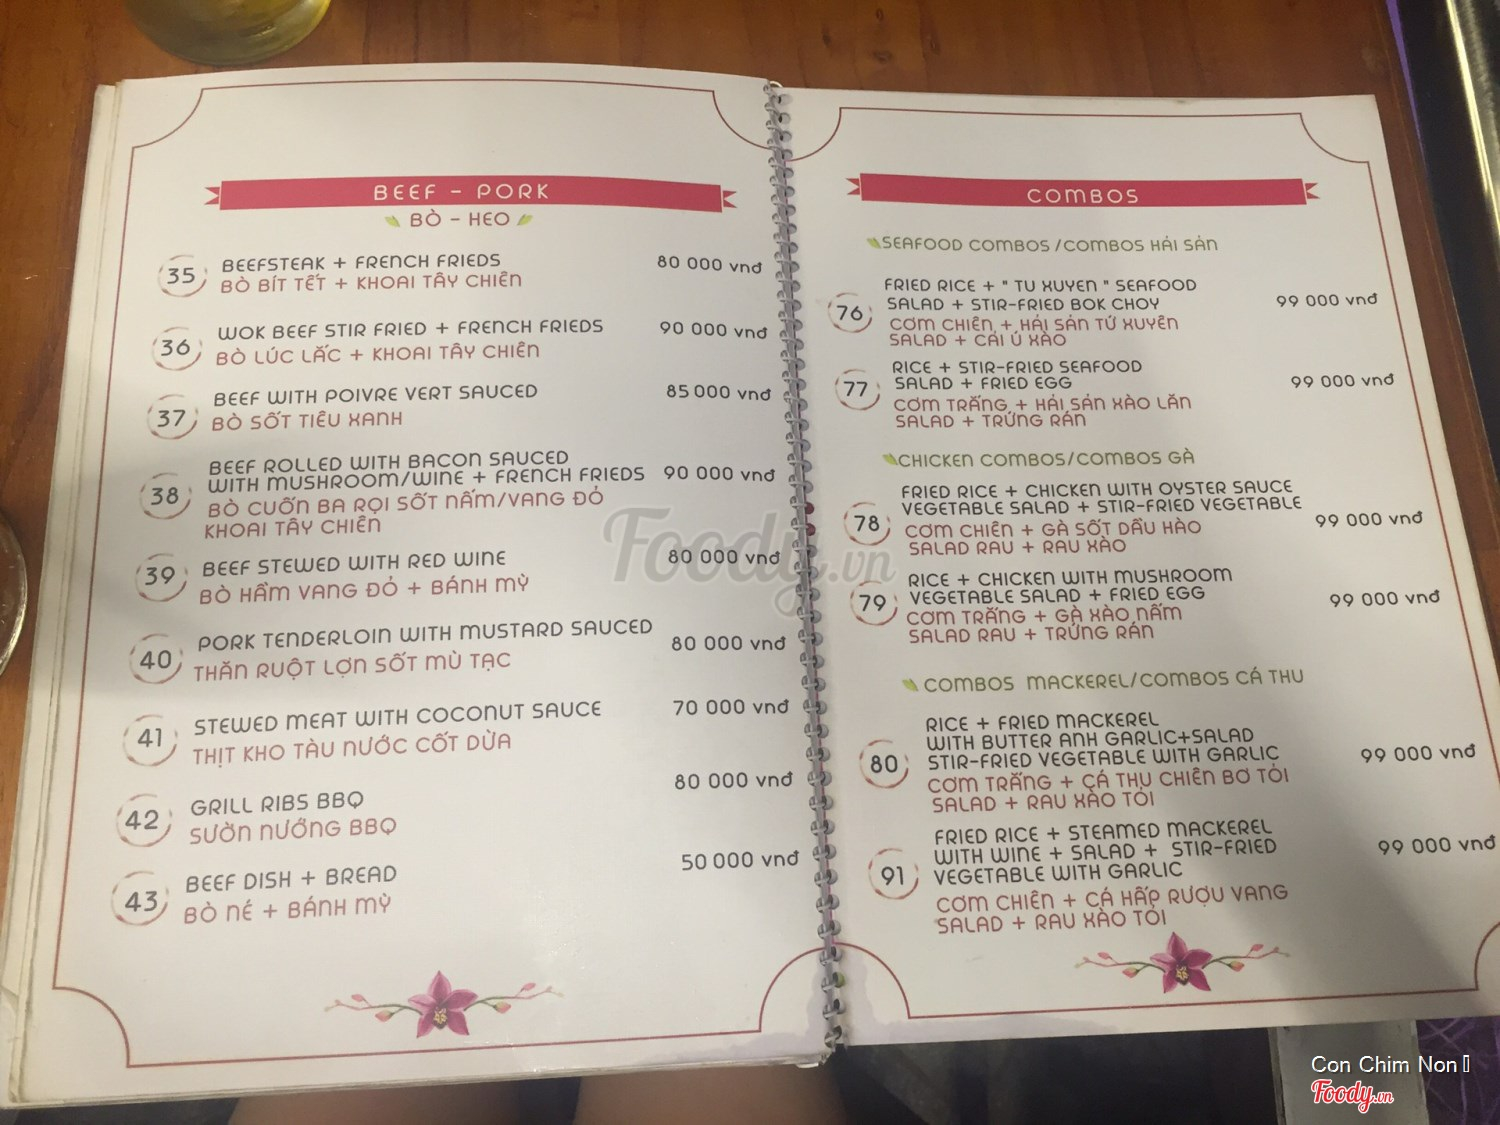 BEEF - PORK
BÒ - HEO
35 BEEFSTEAK + FRENCH FRIEDS 80 000 vnđ
BÒ BÍT TẾT + KHOAI TÂY CHIÊN
36 WOK BEEF STIR FRIED + FRENCH FRIEDS 90 000 vnđ
BÒ LÚC LẮC + KHOAI TÂY CHIÊN
37 BEEF WITH POIVRE VERT SAUCED 85 000 vnđ
BÒ SỐT TIÊU XANH
38 BEEF ROLLED WITH BACON SAUCED
WITH MUSHROOM/WINE + FRENCH FRIEDS 90 000 vnđ
BÒ CUỐN BA RỌI SỐT NẤM/VANG ĐỎ
KHOAI TÂY CHIÊN
39 BEEF STEWED WITH RED WINE 80 000 vnđ
BÒ HẦM VANG ĐỎ + BÁNH MỲ
40 PORK TENDERLOIN WITH MUSTARD SAUCED 80 000 vnđ
THĂN RUỘT LỢN SỐT MÙ TẠC
41 STEWED MEAT WITH COCONUT SAUCE 70 000 vnđ
THỊT KHO TÀU NƯỚC CỐT DỪA
42 GRILL RIBS BBQ 80 000 vnđ
SƯỜN NƯỚNG BBQ
43 BEEF DISH + BREAD 50 000 vnđ
BÒ NÉ + BÁNH MỲ
COMBOS
SEAFOOD COMBOS /COMBOS HẢI SẢN
76 FRIED RICE + " TU XUYEN " SEAFOOD
SALAD + STIR-FRIED BOK CHOY 99 000 vnđ
CƠM CHIÊN + HẢI SẢN TỨ XUYÊN
SALAD + CẢI Ú XÀO
77 RICE + STIR-FRIED SEAFOOD
SALAD + FRIED EGG 99 000 vnđ
CƠM TRẮNG + HẢI SẢN XÀO LĂN
SALAD + TRỨNG RÁN
CHICKEN COMBOS/COMBOS GÀ
78 FRIED RICE + CHICKEN WITH OYSTER SAUCE
VEGETABLE SALAD + STIR-FRIED VEGETABLE 99 000 vnđ
CƠM CHIÊN + GÀ SỐT DẦU HÀO
SALAD RAU + RAU XÀO
79 RICE + CHICKEN WITH MUSHROOM
VEGETABLE SALAD + FRIED EGG 99 000 vnđ
CƠM TRẮNG + GÀ XÀO NẤM
SALAD RAU + TRỨNG RÁN
COMBOS MACKEREL/COMBOS CÁ THU
80 RICE + FRIED MACKEREL
WITH BUTTER ANH GARLIC+SALAD
STIR-FRIED VEGETABLE WITH GARLIC 99 000 vnđ
CƠM TRẮNG + CÁ THU CHIÊN BƠ TỎI
SALAD + RAU XÀO TỎI
91 FRIED RICE + STEAMED MACKEREL
WITH WINE + SALAD + STIR-FRIED
VEGETABLE WITH GARLIC 99 000 vnđ
CƠM CHIÊN + CÁ HẤP RƯỢU VANG
SALAD + RAU XÀO TỎI
Foody.vn
Con Chim Non
Foody.vn